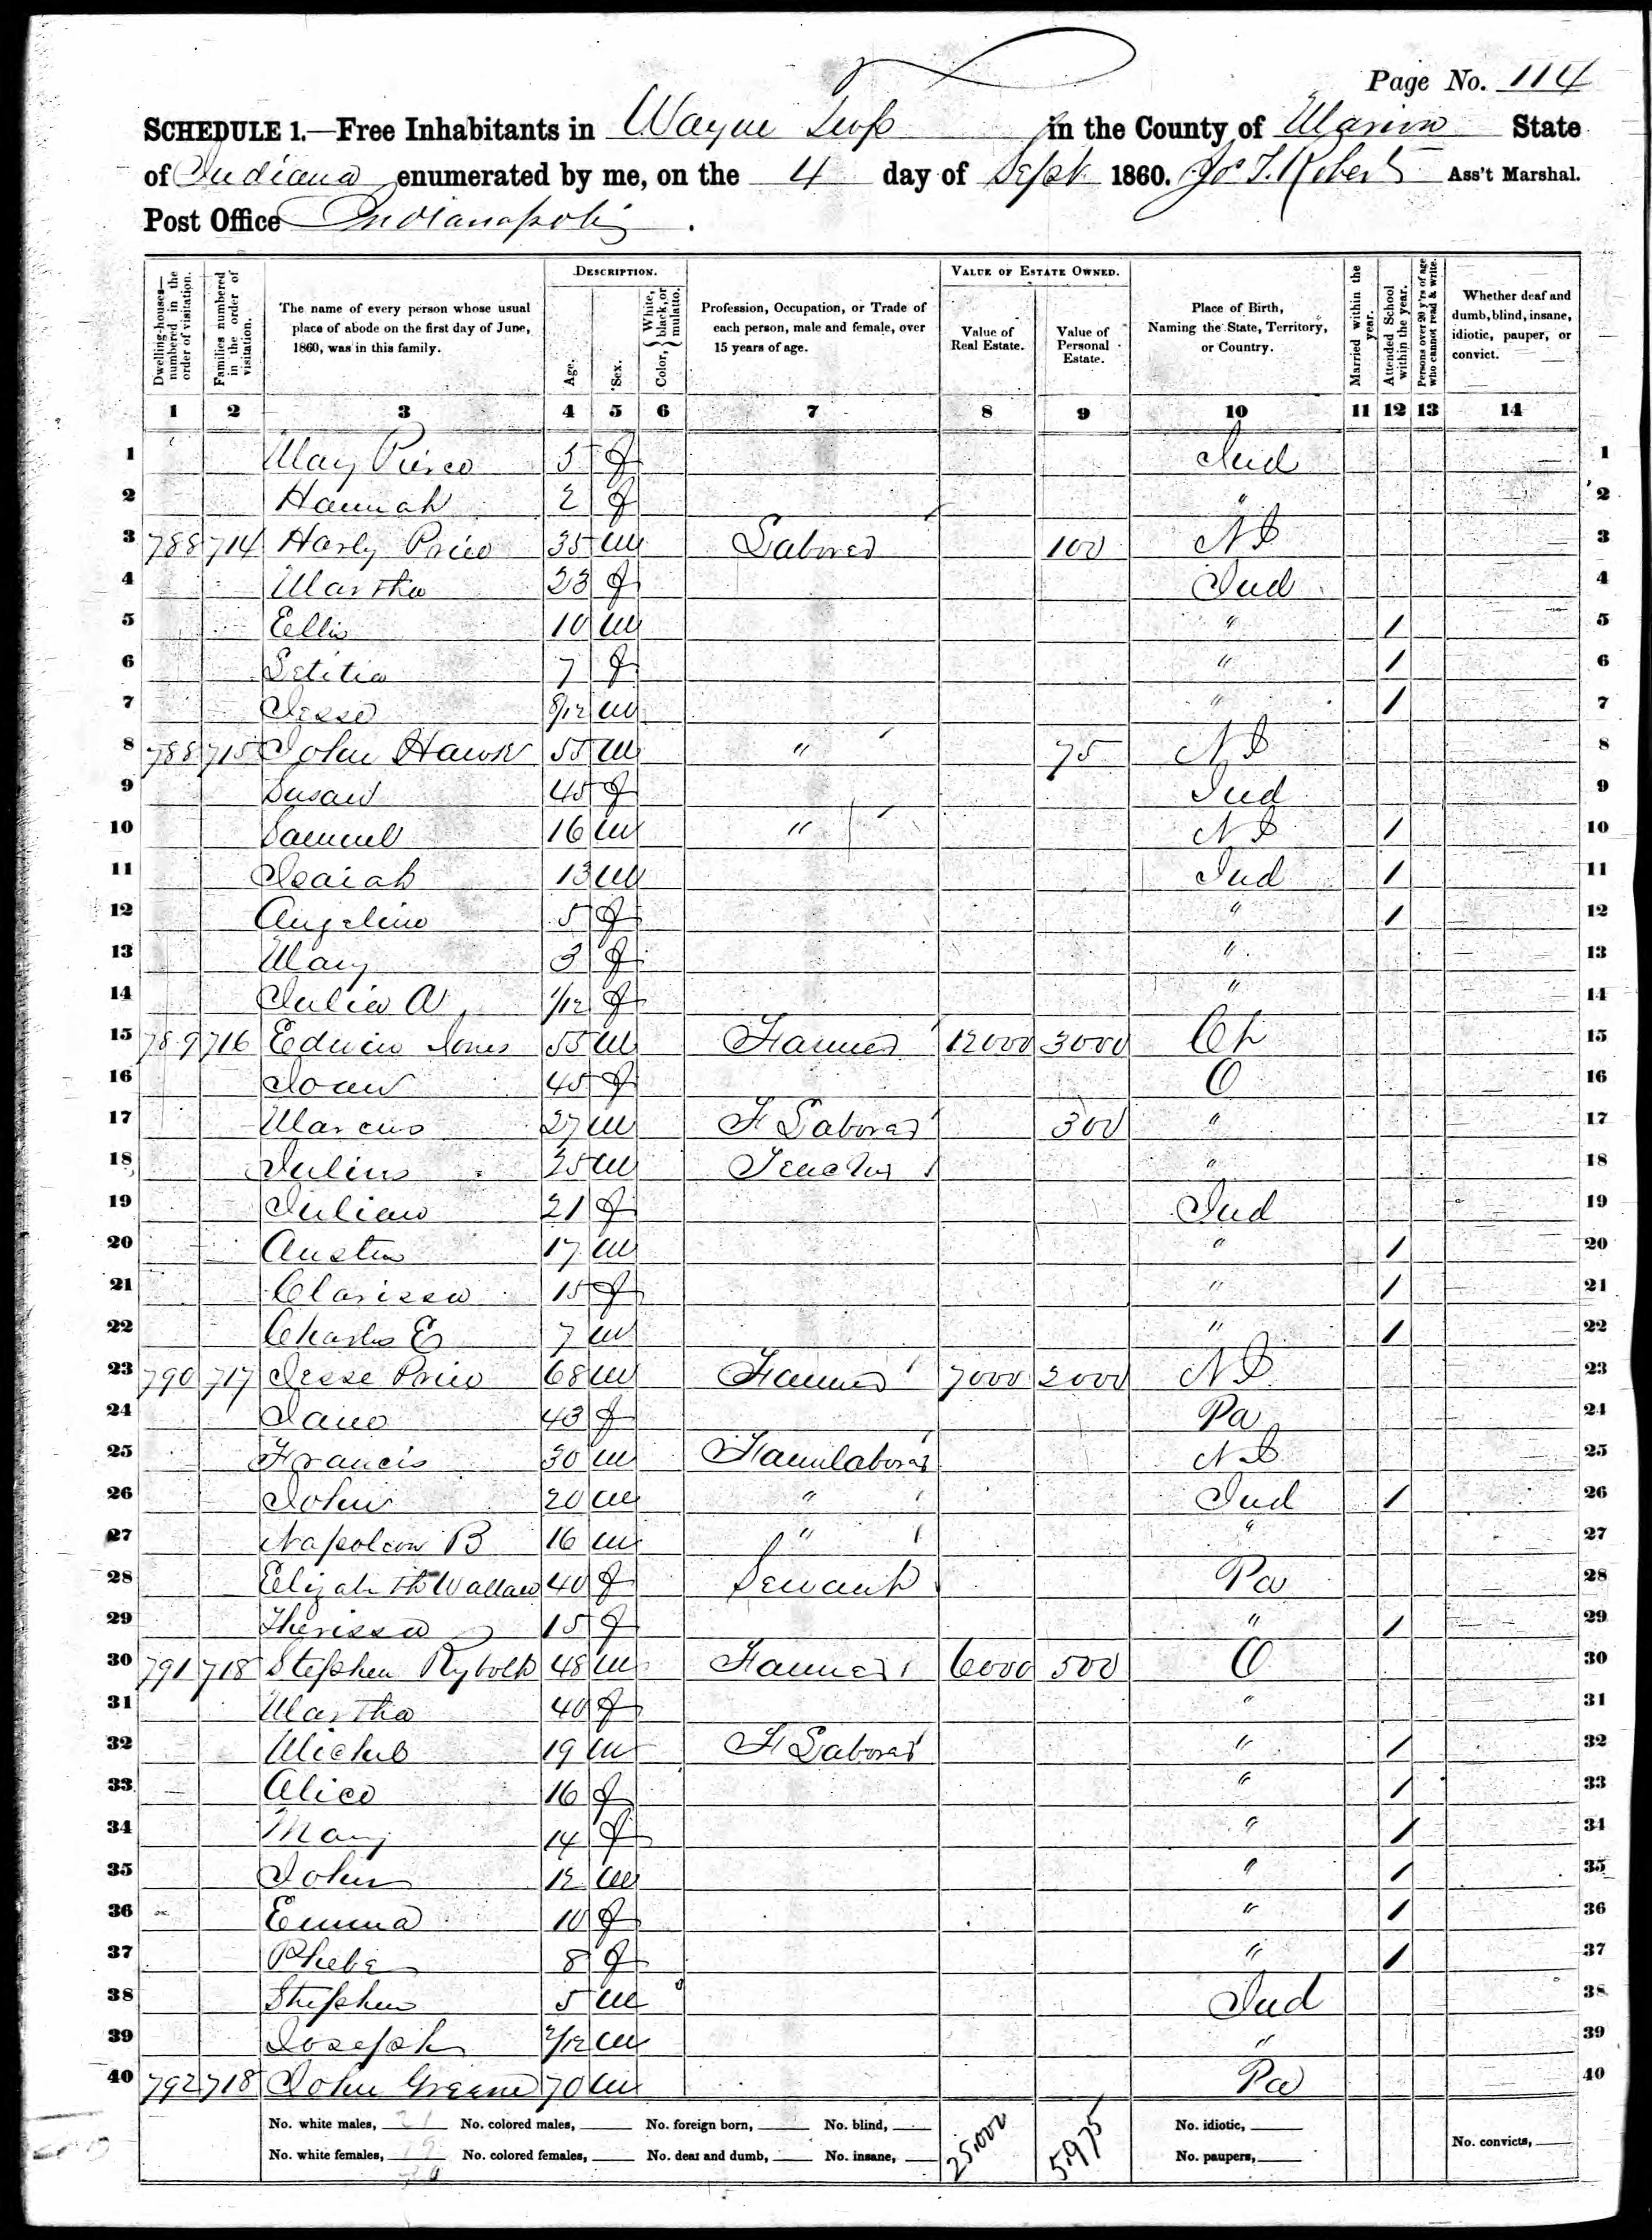 Page No. 114
SCHEDULE 1.—Free Inhabitants in Wayne Twp in the County of Marion State
of Indiana enumerated by me, on the 4 day of Sept 1860. Jo. T. Roberts Ass't Marshal.
Post Office Indianapolis.
DESCRIPTION. VALUE OF ESTATE OWNED.
Dwelling-houses—numbered in the order of visitation. Families numbered in the order of visitation. The name of every person whose usual place of abode on the first day of June, 1860, was in this family. Age. Sex. Color, { White, black, or mulatto. Profession, Occupation, or Trade of each person, male and female, over 15 years of age. Value of Real Estate. Value of Personal Estate. Place of Birth, Naming the State, Territory, or Country. Married within the year. Attended School within the year. Persons over 20 y'rs of age who cannot read & write. Whether deaf and dumb, blind, insane, idiotic, pauper, or convict.
1 2 3 4 5 6 7 8 9 10 11 12 13 14
1 May Pierce 5 f Ind 1
2 Hannah 2 f " 2
3 788 714 Harly Price 35 m Laborer 100 3
4 Martha 23 f Ind 4
5 Ellis 10 m " / 5
6 Letitia 7 f " / 6
7 Jesse 8/12 m " / 7
8 788 715 John Hawk 55 m " 75 8
9 Susan 45 f Ind 9
10 Samuel 16 m " / 10
11 Isaiah 13 m Ind / 11
12 Angeline 5 f " / 12
13 Mary 3 f " 13
14 Julia A 1/12 f " 14
15 789 716 Edwin Jones 55 m Farmer 12000 3000 15
16 Joan 45 f O 16
17 Marcus 27 m F Laborer 300 " 17
18 Julius 25 m Teacher " 18
19 Julian 21 f Ind 19
20 Austin 17 m " / 20
21 Clarissa 15 f " / 21
22 Charles E 7 m " / 22
23 790 717 Jesse Price 68 m Farmer 7000 2000 23
24 Jane 43 f Pa 24
25 Francis 30 m Farmlaborer 25
26 John 20 m " Ind / 26
27 Napoleon B 16 m " " 27
28 Elizabeth Wallace 40 f Servant Pa 28
29 Therissa 15 f " / 29
30 791 718 Stephen Rybolt 48 m Farmer 6000 500 O 30
31 Martha 40 f " 31
32 19 m F Laborer " / 32
33 Alice 16 f " / 33
34 Mary 14 f " / 34
35 John 12 m " / 35
36 Emma 10 f " / 36
37 Phebe 8 f " / 37
38 Stephen 5 m Ind 38
39 Joseph 2/12 m " 39
40 792 718 John Greene 70 m Pa 40
No. white males, 21 No. colored males, No. foreign born, No. blind, 25,000 5,975 No. idiotic,
No. white females, 19 No. colored females, No. deaf and dumb, No. insane, No. paupers, No. convicts,